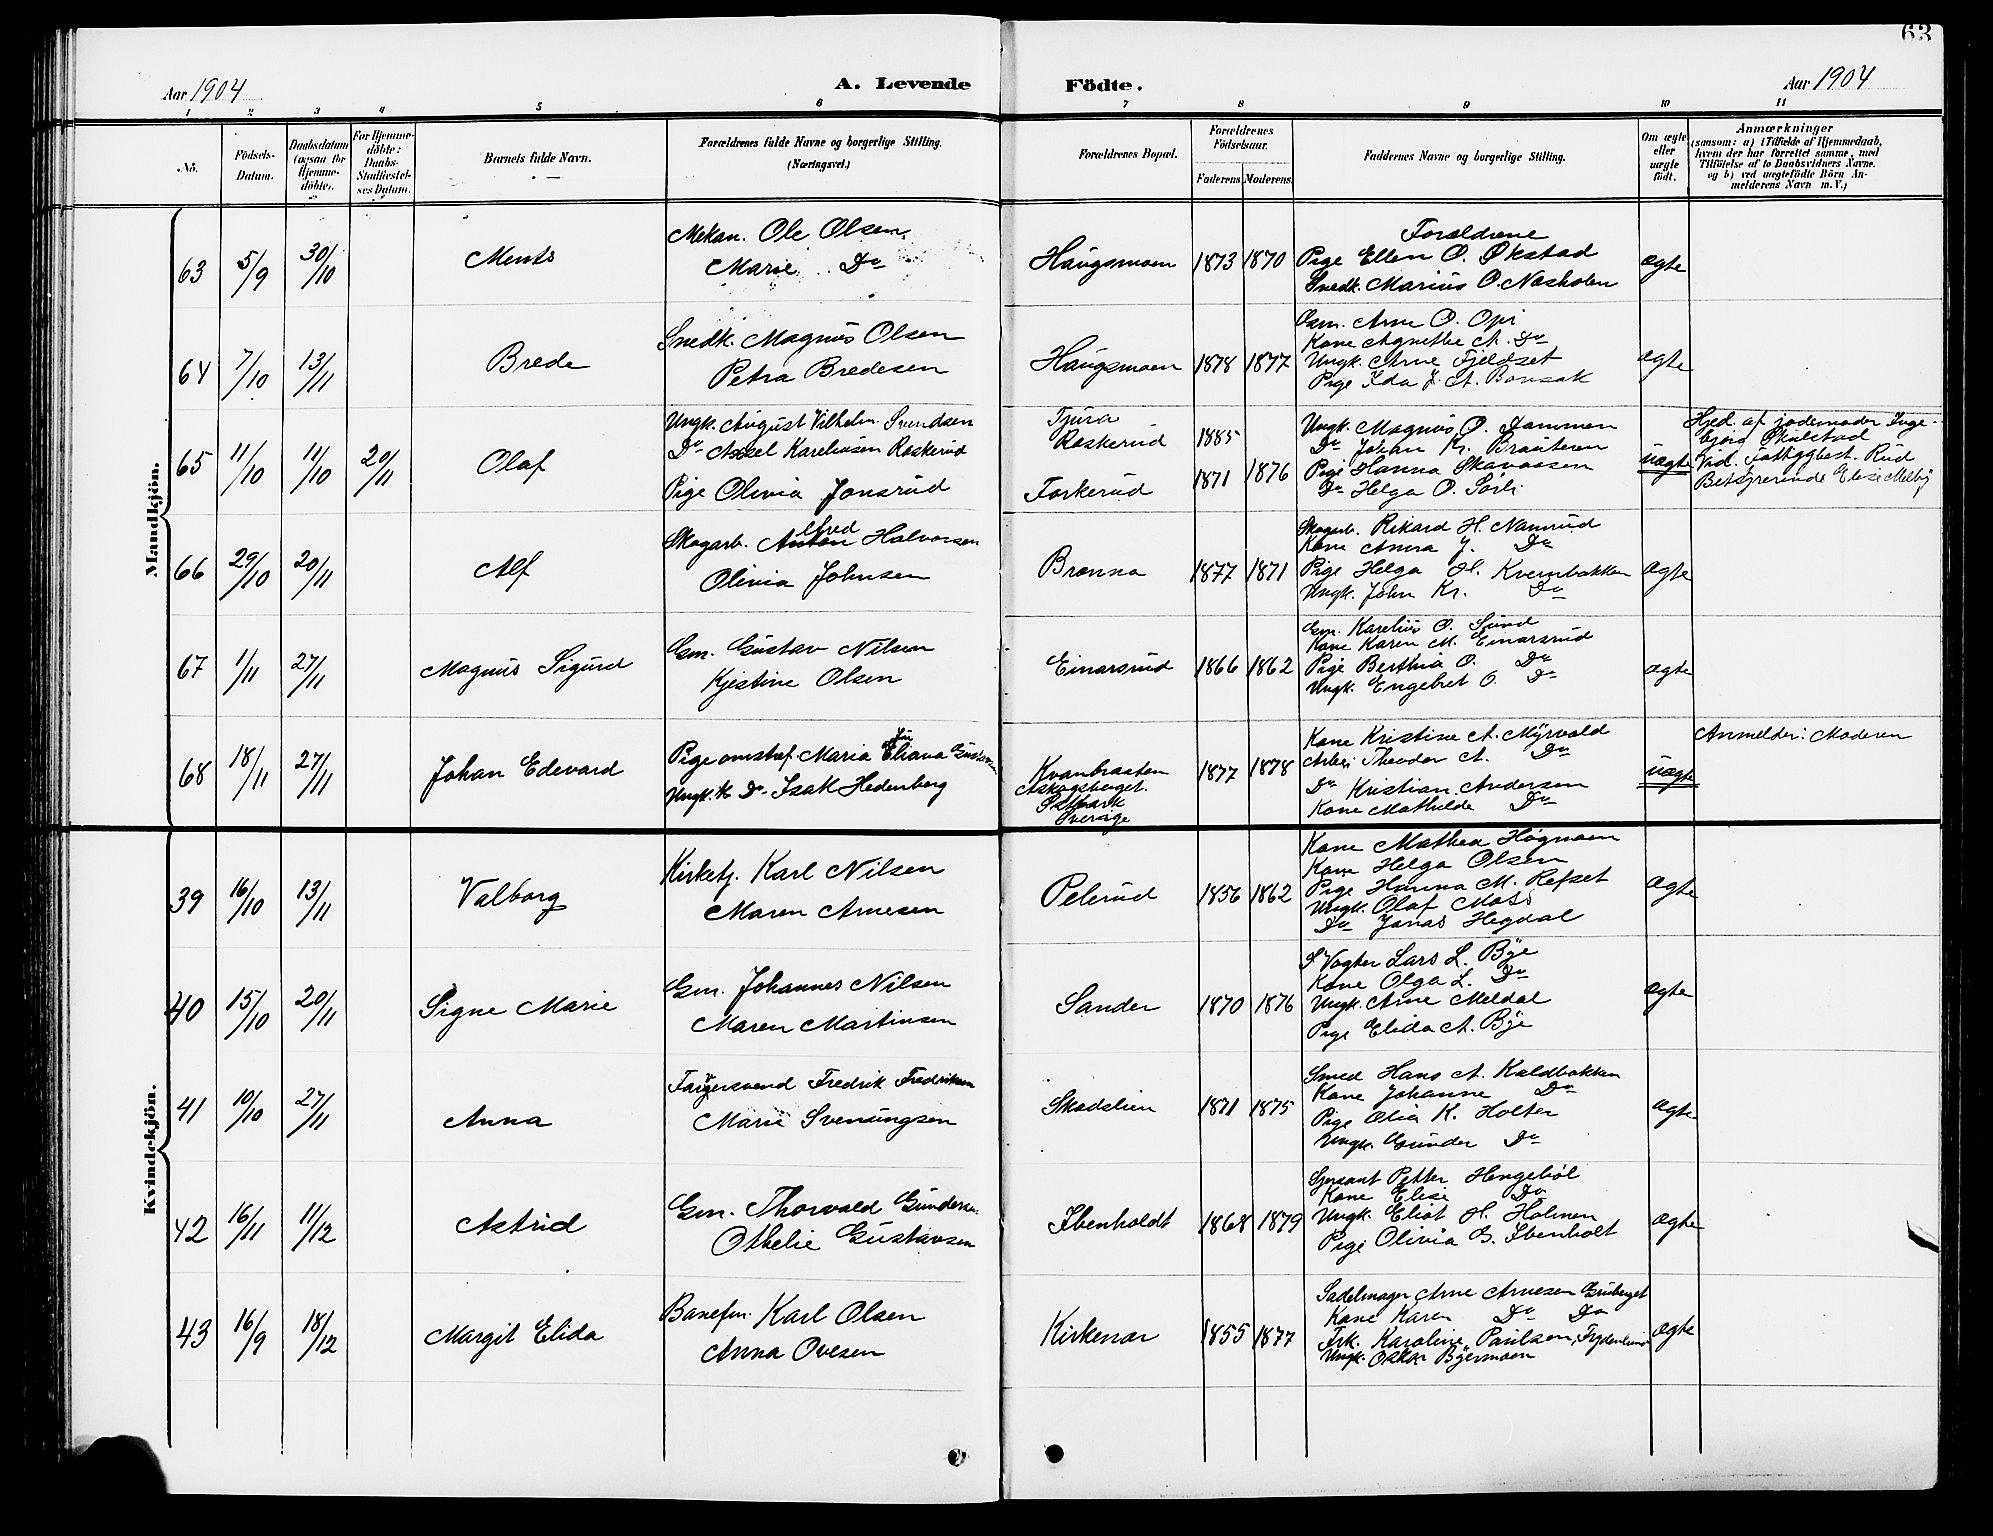 63
Aar 1904
A. Levende
Födte.
Aar 1904
1 2 3 4 5 6 7 8 9 10 11
No.
Födsels-
Datum.
Daabsdatum
(ogsaa for
Hjemme-
döbte).
For Hjemme-
döbte:
Daabs-
Stadfæstel-
ses Datum.
Barnets fulde Navn.
Forældrenes fulde Navne og borgerlige Stilling.
(Næringsvei.)
Forældrenes Bopæl.
Forældrenes
Födselsaar.
Faderens. Moderens.
Faddernes Navne og borgerlige Stilling.
Om ægte
eller
uægte
födt.
Anmærkninger
(saasom: a) i Tilfælde af Hjemmedaab,
hvem der har forrettet samme, med
Tilföielse af to Daabsvidners Navne.
og b) ved uægtefödte Börn An-
melderens Navn m. V.)
Mandkjön.
63 5/9 30/10
Ments
Mekan. Ole Olsen
Marie Do
Haugsmoen
1873 1870
Forældrene
Pige Ellen O. Økstad
Snedk. Marius O. Næsholen
ægte
64 7/10 13/11
Brede
Snedk. Magnus Olsen
Petra Bredesen
Haugsmoen
1878 1877
Arne O. Opi
Kone Agnethe A. Do
Ungk. Arne Fjeldset
Pige Ida J. A. Bonsak
ægte
65 11/10 11/10 20/11
Olaf
Ungk. August Vilhelm Svendsen
Do Axel Kareliusen Raskerud
Pige Olivia Jonsrud
Tjura
Raskerud
Torkerud
1885
1871 1876
Ungk. Magnus O. Dammen
Do Johan Kr. Bråuteren
Pige Hanna Skavaasen
Do Helga O. Sorli
uægte
Hjed. af jodemoder Inge-
bjørg Økilstad
Vid. Fattiggbest. Rud
Bestyrerinde Elise Melby
66 29/10 20/11
Alf
Skogarb. Alfred Halvorsen
Olivia Johnsen
Brænna
1877 1871
Skogarb. Rikard H. Namrud
Kone Anna J. Do
Pige Helga H. Kvernbakken
Ungk. John Kr. Do
ægte
67 1/11 27/11
Magnus Sigurd
Gm. Gustav Nilsen
Kjestine Olsen
Einarsrud
1866 1862
Gm. Karelius O. Sund
Kone Karen M. Einarsrud
Pige Berthia O. Do
Ungk. Engebret O. Do
ægte
68 18/11 27/11
Johan Edevard
Pige omstrf. Maria Eliana Gustavsen
Ungk. K Do Isak Hedenberg
Kvanbraaten
Askogsberget
Sverige
1877 1878
Kone Kristine A. Myrvold
Arbei. Theodor A. Do
Do Kristian Andersen
Kone Mathilde Do
uægte
Anmelder: Moderen
Kvindekjön.
39 16/10 13/11
Valborg
Kirketj. Karl Nilsen
Maren Arnesen
Pelerud
1856 1862
Kone Mathea Høgmoen
Kone Helga Olsen
Pige Hanna M. Refset
Ungk. Olaf Moss
Do Jonas Hegdal
ægte
40 15/10 20/11
Signe Marie
Gm. Johannes Nilsen
Maren Martinsen
Sander
1870 1876
Vogter Lars L. Bye
Kone Olga L. Do
Ungk. Arne Meldal
Pige Elida A. Bye
ægte
41 10/10 27/11
Anna
Farversvend Fredrik Fredriksen
Marie Svenungsen
Skodslien
1871 1875
Smed Hans A. Kaldbakken
Kone Johanne Do
Pige Olia K. Holter
Ungk. Gunder Do
ægte
42 16/11 11/12
Astrid
Gm. Thorvald Gundersen
Othelie Gustavsen
Ibenholdt
1868 1879
Sjersant Petter Hengebøl
Kone Elise Do
Ungk. Eliot H. Holmen
Pige Olivia G. Ibenholt
ægte
43 16/9 18/12
Margit Elida
Banefm. Karl Olsen
Anna Ovesen
Kirkenær
1855 1877
Sadelmager Arne Arnesen Gruberget
Kone Karen Do Do
Frk. Karoline Paulsen, Frydenlund
Ungk. Oskar Byermoen
ægte